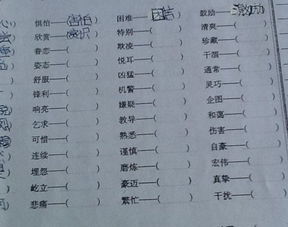 惧怕——(害怕) 困难——(困苦) 鼓励——(激励)
欣赏——( ) 特别——( ) 清爽——( )
眷恋——( ) 欺凌——( ) 珍藏——( )
姿态——( ) 悦耳——( ) 干涸——( )
舒服——( ) 凶猛——( ) 通常——( )
锋利——( ) 机警——( ) 灵巧——( )
响亮——( ) 嫌疑——( ) 企图——( )
乞求——( ) 教导——( ) 和蔼——( )
可惜——( ) 熟悉——( ) 伤害——( )
连续——( ) 谨慎——( ) 自豪——( )
埋怨——( ) 磨炼——( ) 宏伟——( )
屹立——( ) 豪迈——( ) 直挚——( )
悲痛——( ) 繁忙——( ) 干扰——( )